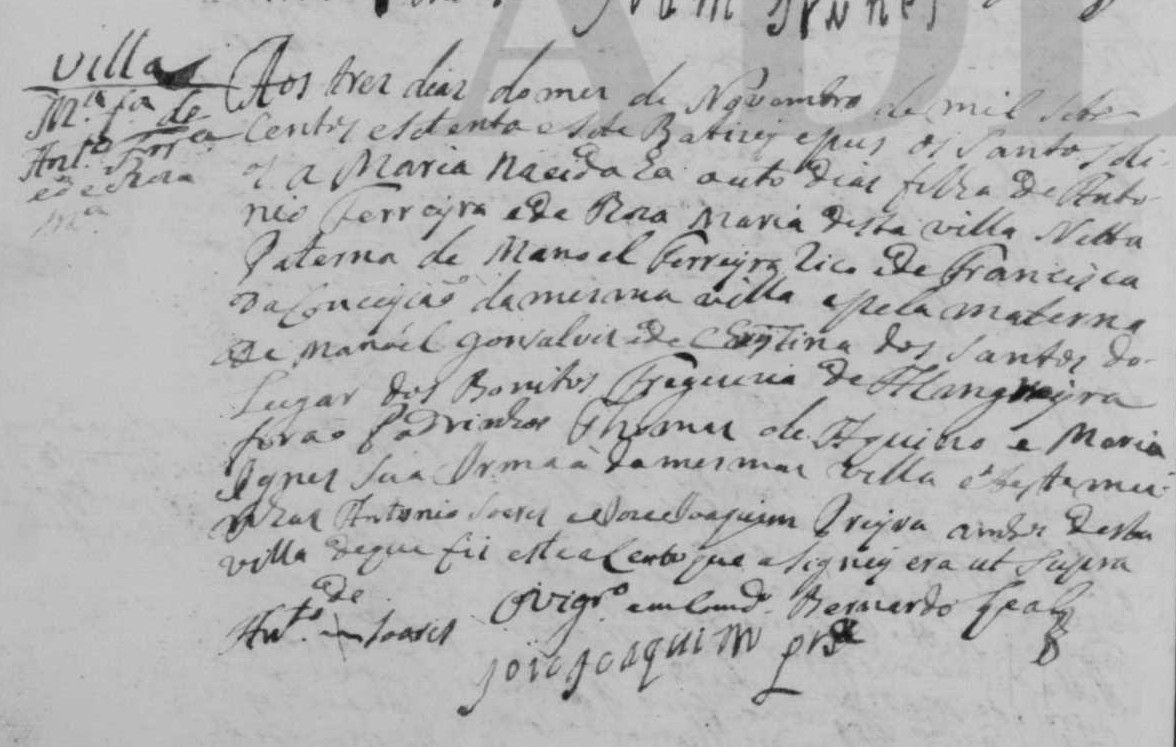 Villa
M.ª f.ª de
Ant.º Ferr.ª
e de Roza
M.ª
Aos tres dias do mes de Novembro de mil sete
centos e setenta e sete Batizey e pus os Santos oli
os a Maria Nacida ha outo dias filha de Anto
nio Ferreyra e de Roza Maria desta villa Netta
Paterna de Manoel Ferreyra Rico e de Francisca
da Conceição da mesma villa e pela materna
de Manoel Gonsalves e de Cristina dos Santos do
Lugar dos Bonitos Freguezia de
forão Padrinhos Thomas de Aquino e Maria
Ignes sua Irmaã da mesma villa e testemu
nhas Antonio Soares e Joze Joaquim Preyra ambos desta
villa de que fis este acento que asigney era ut supra
O Vigr.º encomd. Bernardo Leal
Ant.º de Soares
Joze Joaquim Prª